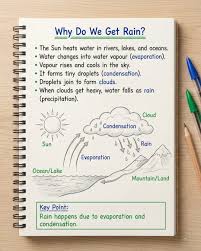 Why Do We Get Rain?
• The Sun heats water in rivers, lakes, and oceans.
• Water changes into water vapour (evaporation).
• Vapour rises and cools in the sky.
• It forms tiny droplets (condensation).
• Droplets join to form clouds.
• When clouds get heavy, water falls as rain
(precipitation).
Cloud
Sun
Condensation
Rain
Evaporation
Ocean/Lake
Mountain/Land
Key Point:
Rain happens due to evaporation and
condensation.